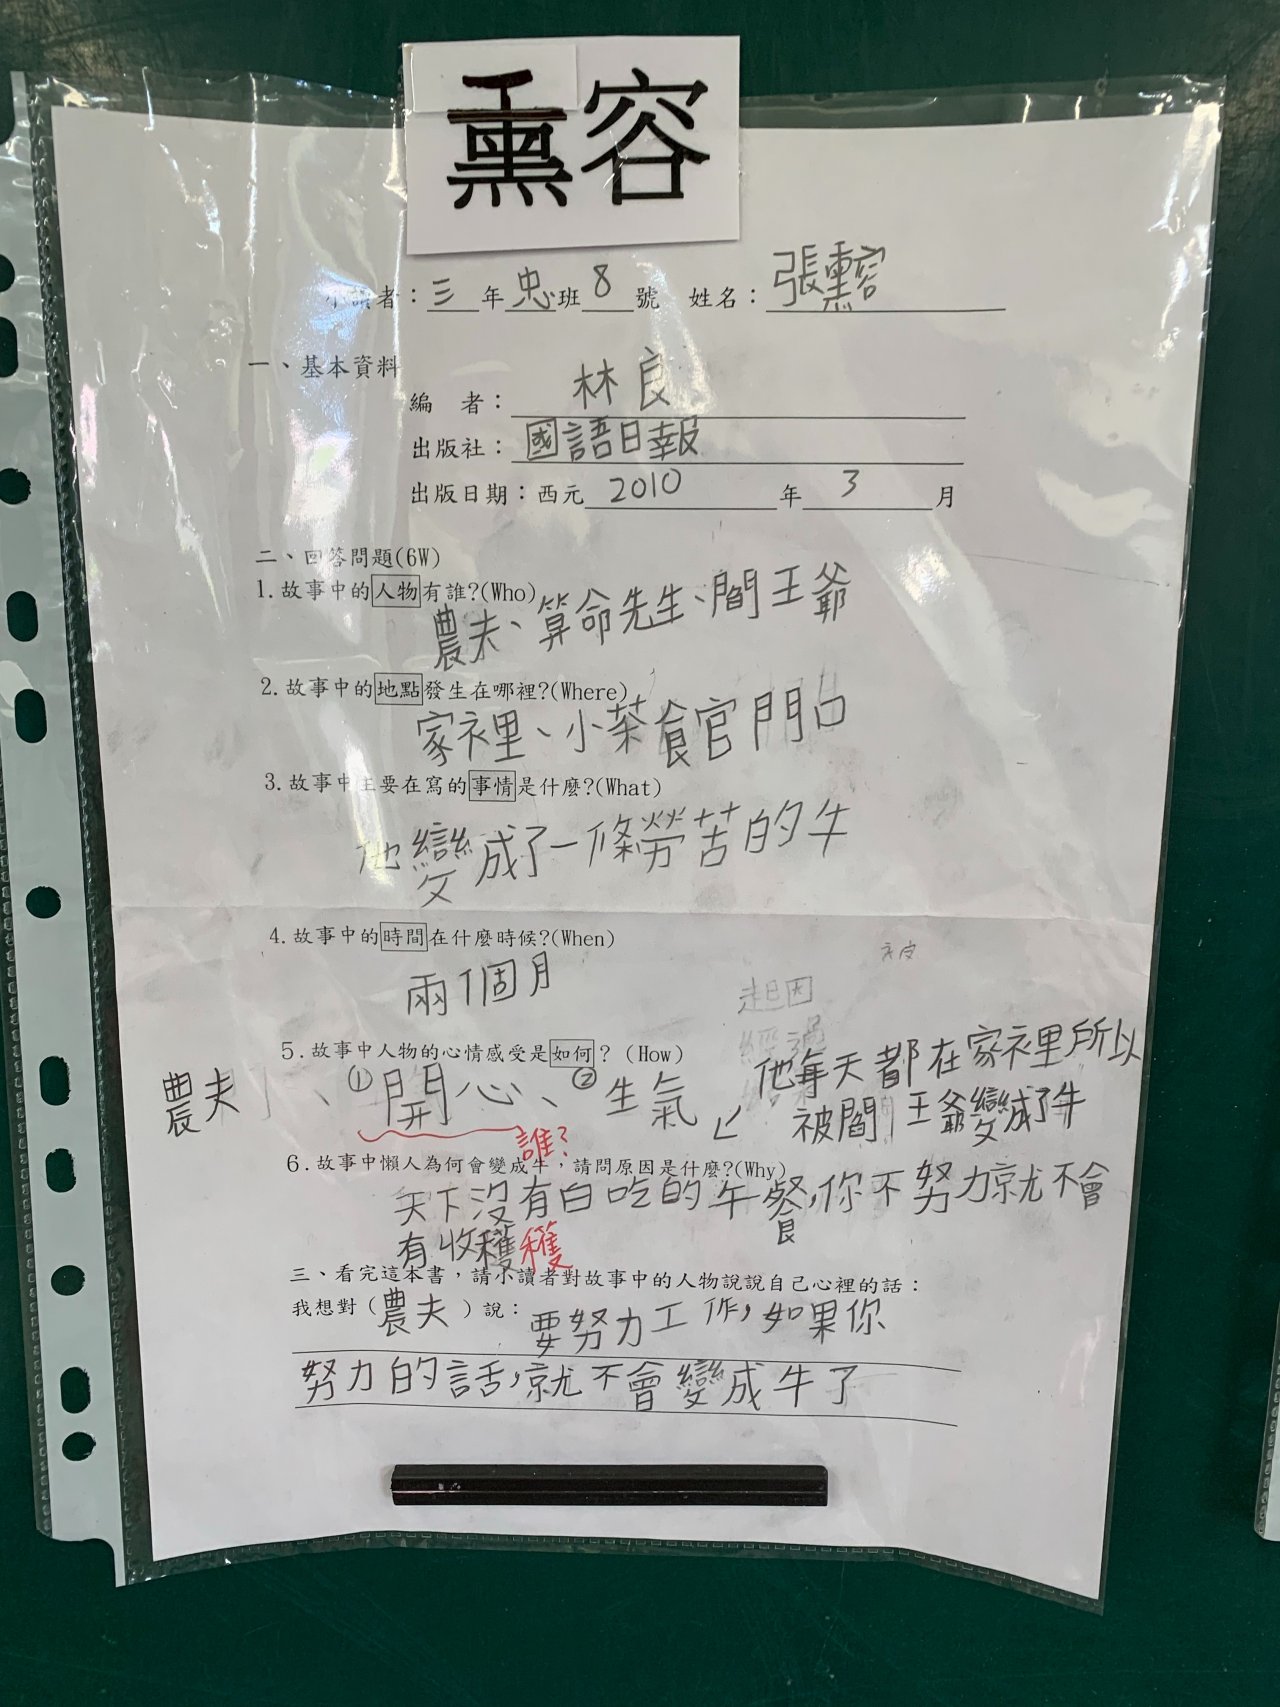 熏容
小讀者：三年忠班8號 姓名：張熏容
一、基本資料
編 者：林良
出版社：國語日報
出版日期：西元2010年3月
二、回答問題(6W)
1.故事中的人物有誰?(Who)
農夫、算命先生、閻王爺
2.故事中的地點發生在哪裡?(Where)
家裡、小菜館門口
3.故事中主要在寫的事情是什麼?(What)
他變成了一條勞苦的牛
4.故事中的時間在什麼時候?(When)
被
兩個月
起因
經過
5.故事中人物的心情感受是如何？(How)
他每天都在家裡所以
農夫、①開心、②生氣 ↙ 被閻王爺變成了牛
誰?
6.故事中懶人為何會變成牛，請問原因是什麼?(Why)
天下沒有白吃的午餐,你不努力就不會
有收穫穫
三、看完這本書，請小讀者對故事中的人物說說自己心裡的話：
我想對（農夫）說：要努力工作,如果你
努力的話,就不會變成牛了